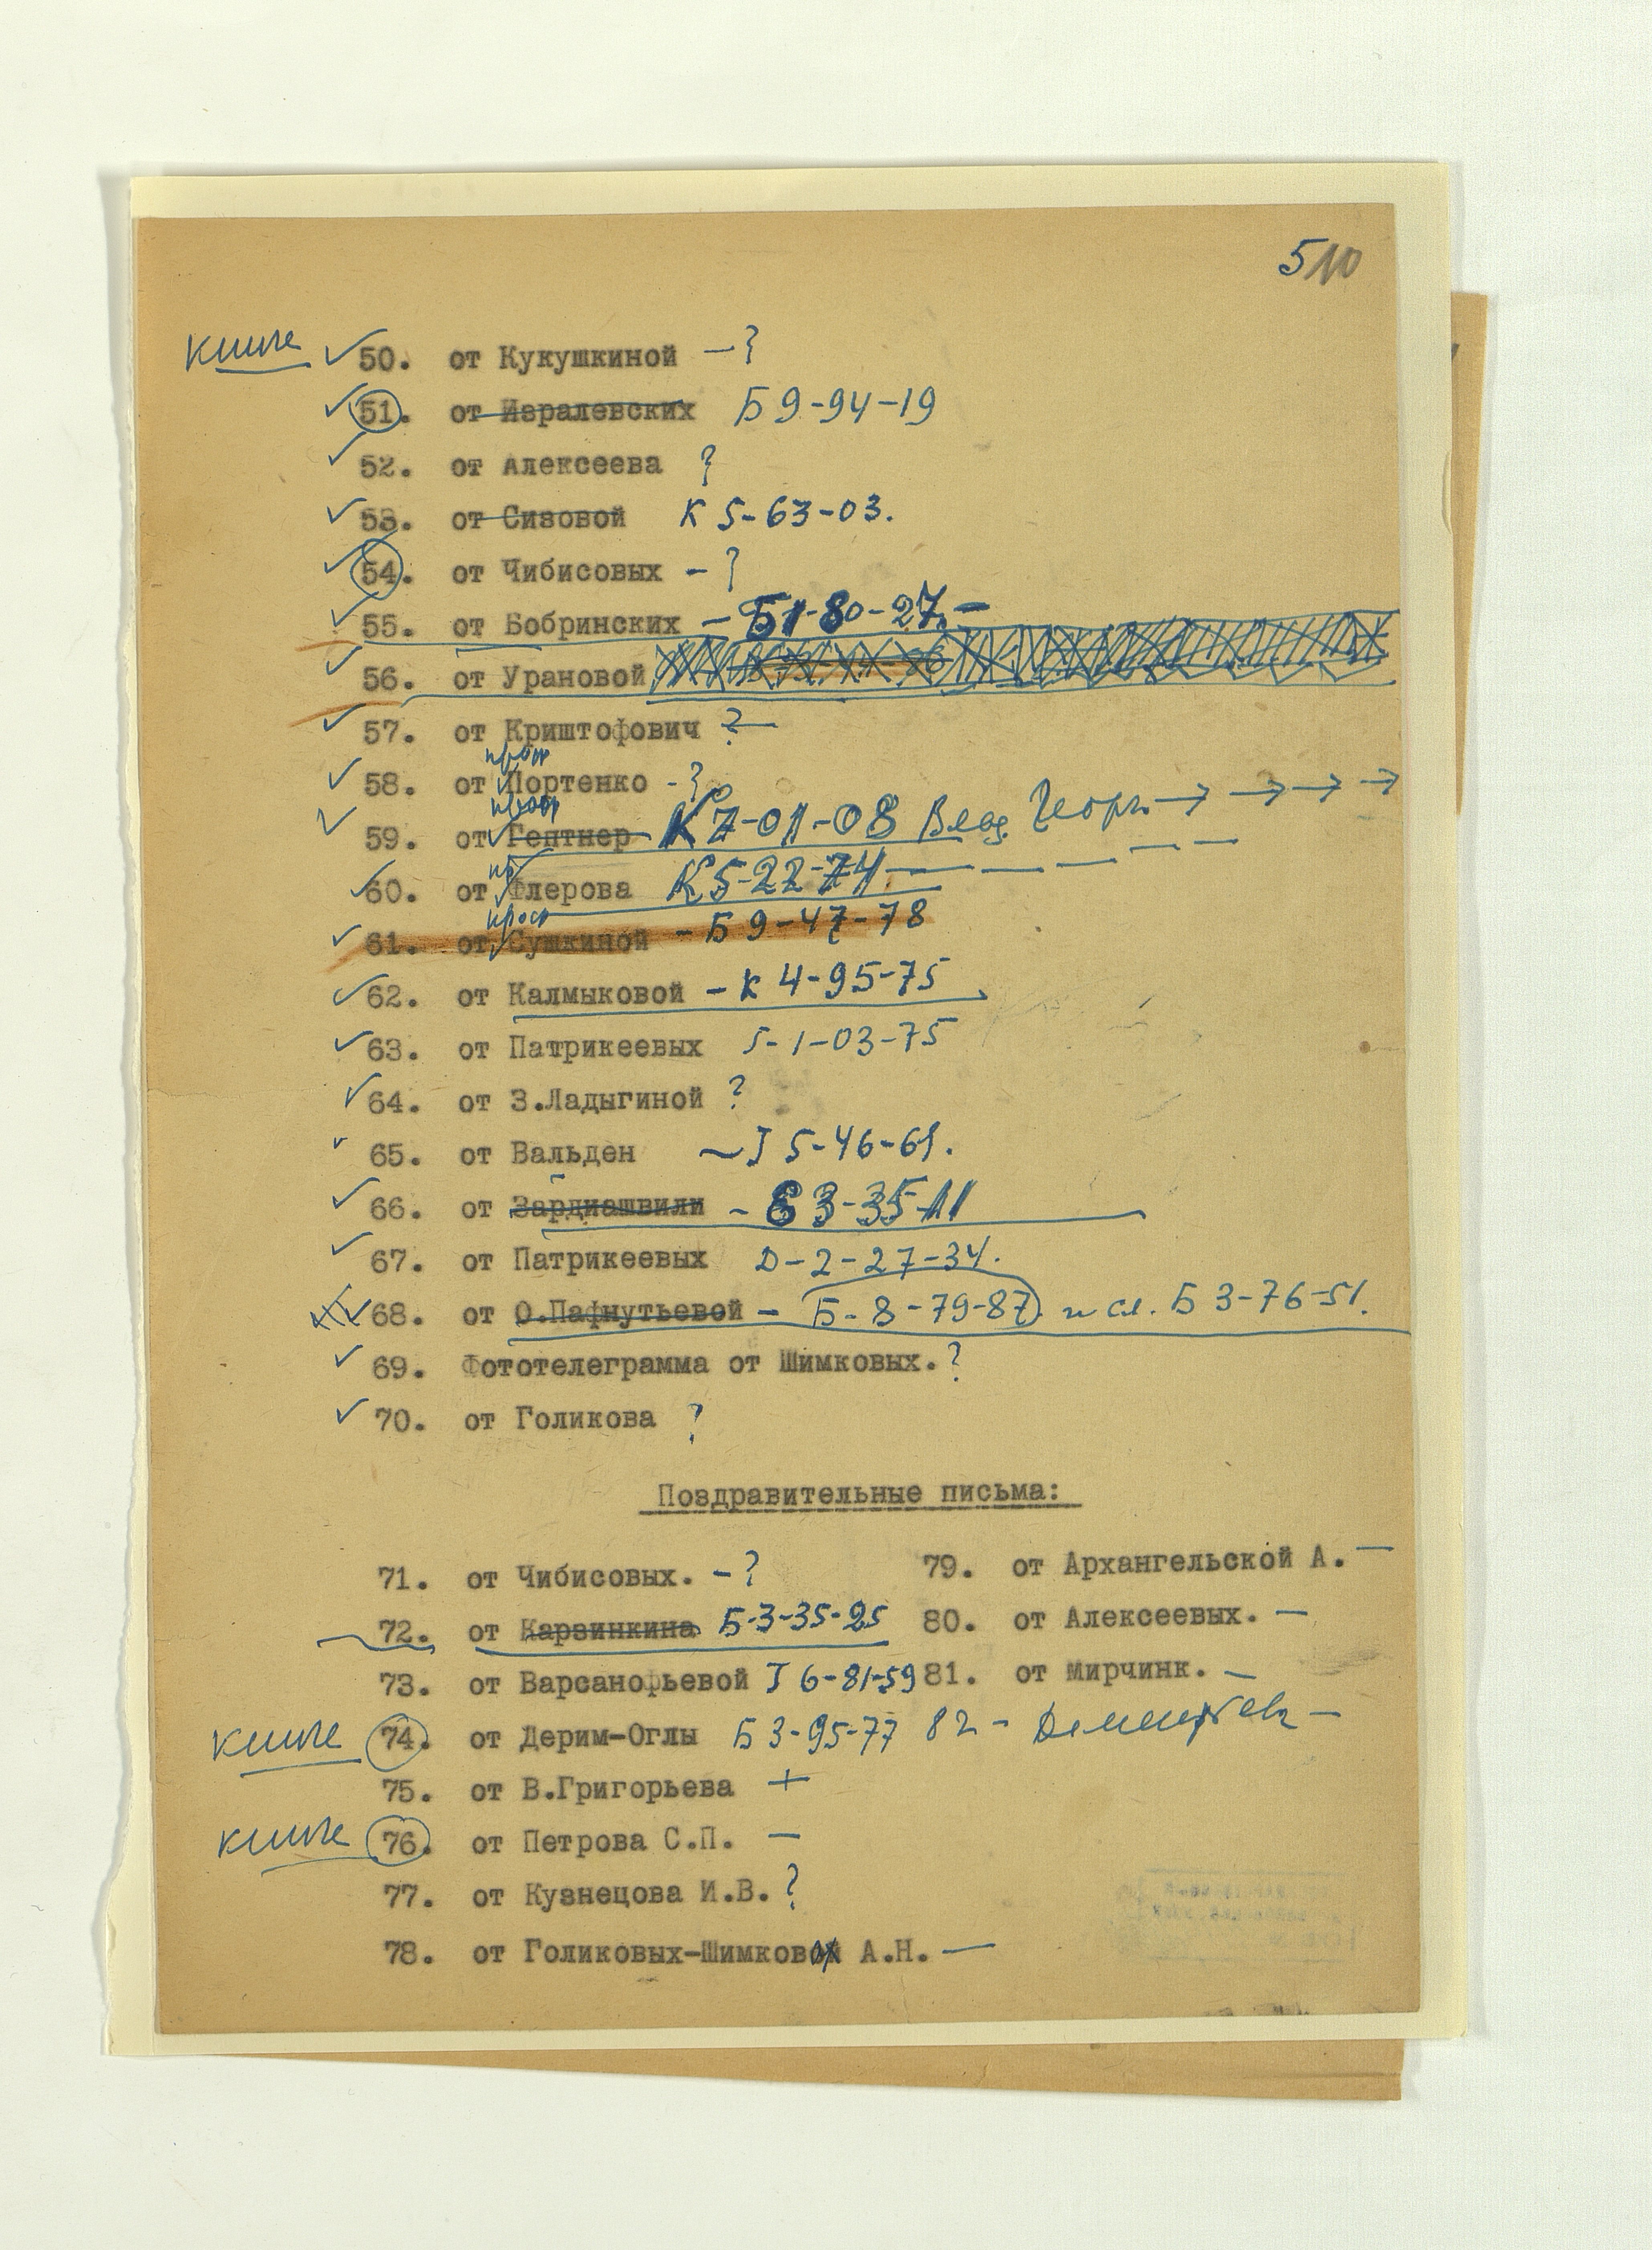 510
книге 50. от Кукушкиной - ?
51. от Изралевских Б 9-94-19
52. от Алексеева ?
53. от Сизовой К 5-63-03.
54. от Чибисовых - ?
55. от Бобринских - Б1-80-27. -
56. от Урановой
57. от Криштофович ?
проф
58. от Портенко - ?
проф
59. от Гептнер К 7-01-08 Влад. Георг.
60. от Флерова К5-22-74
проф
61. от Сушкиной - Б 9-47-78
62. от Калмыковой - К 4-95-75
63. от Патрикеевых 5-1-03-75
64. от З.Ладыгиной ?
65. от Вальден
66. от Зардиашвили - Е 3-35-11
67. от Патрикеевых Д-2-27-34.
68. от О.Пафнутьевой - Б-8-79-87 и сл. Б 3-76-51.
69. Фототелеграмма от Шимковых. ?
70. от Голикова ?
Поздравительные письма:
71. от Чибисовых. - ?
72. от Карзинкина Б-3-35-25
73. от Варсанофьевой
книге 74. от Дерим-Оглы Б 3-95-77
75. от В.Григорьева +
книге 76. от Петрова С.П. -
77. от Кузнецова И.В. ?
78. от Голиковых-Шимковых А.Н. -
79. от Архангельской А. -
80. от Алексеевых. -
81. от Мирчинк. -
82 -